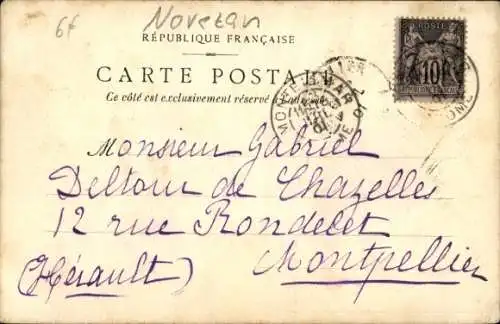 6f
Novezan
RÉPUBLIQUE FRANÇAISE
CARTE POSTALE
Ce côté est exclusivement réservé à l'adresse
10
Monsieur Gabriel
Deltour de Chazelles
12 rue Rondelet
(Hérault) Montpellier